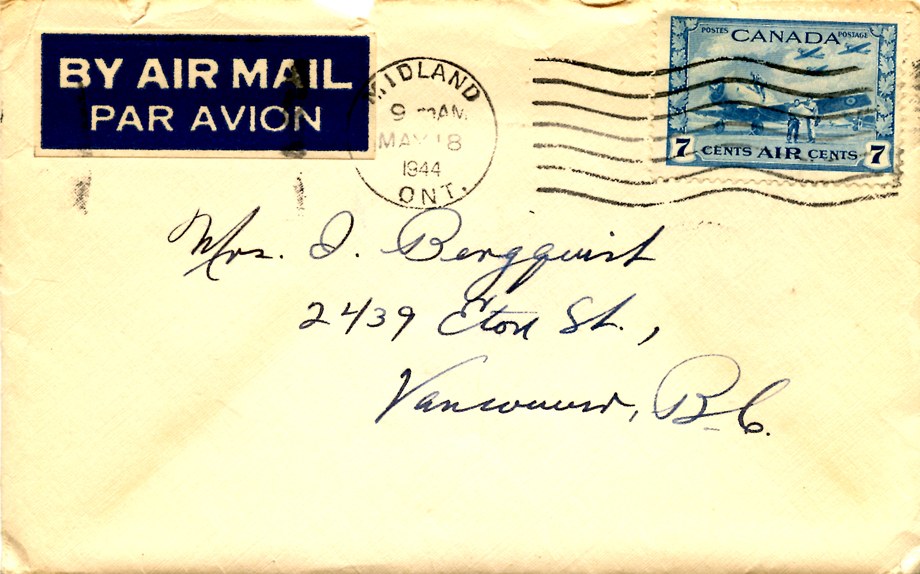 BY AIR MAIL
PAR AVION
MIDLAND
9 AM
MAY 18
1944
ONT.
POSTES CANADA POSTAGE
7 CENTS AIR CENTS 7
Mrs. I. Bergquist
2439 Eton St.,
Vancouver, B.C.